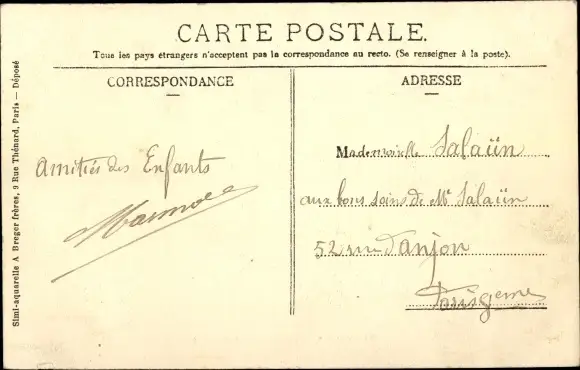 CARTE POSTALE.
Tous les pays étrangers n'acceptent pas la correspondance au recto. (Se renseigner à la poste).
CORRESPONDANCE
Amitiés des Enfants
ADRESSE
Mademoiselle Salaün
aux bons soins de Mr Salaün
52 rue d'anjou
Paris
Simi-aquarelle A Breger frères, 9 Rue Thénard, Paris — Déposé